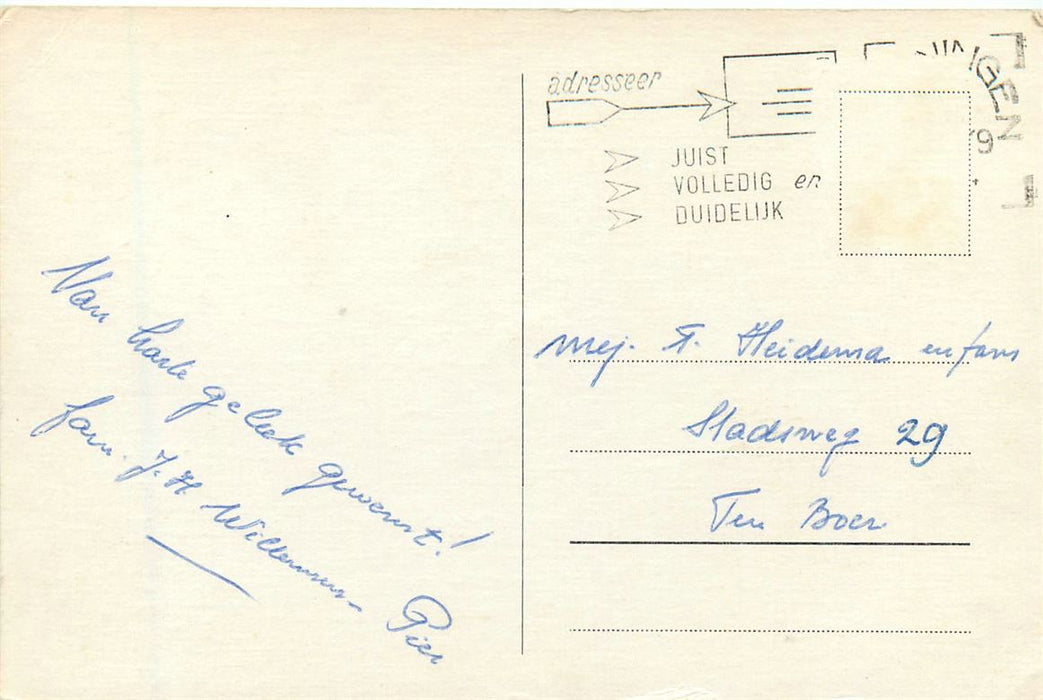 Van harte geluk gewenst!
fam. J. H. Willemsen-Pier
adresseer
JUIST
VOLLEDIG en
DUIDELIJK
NINGEN
9
mej. F. Heidema en fam
Stadsweg 29
Ten Boer